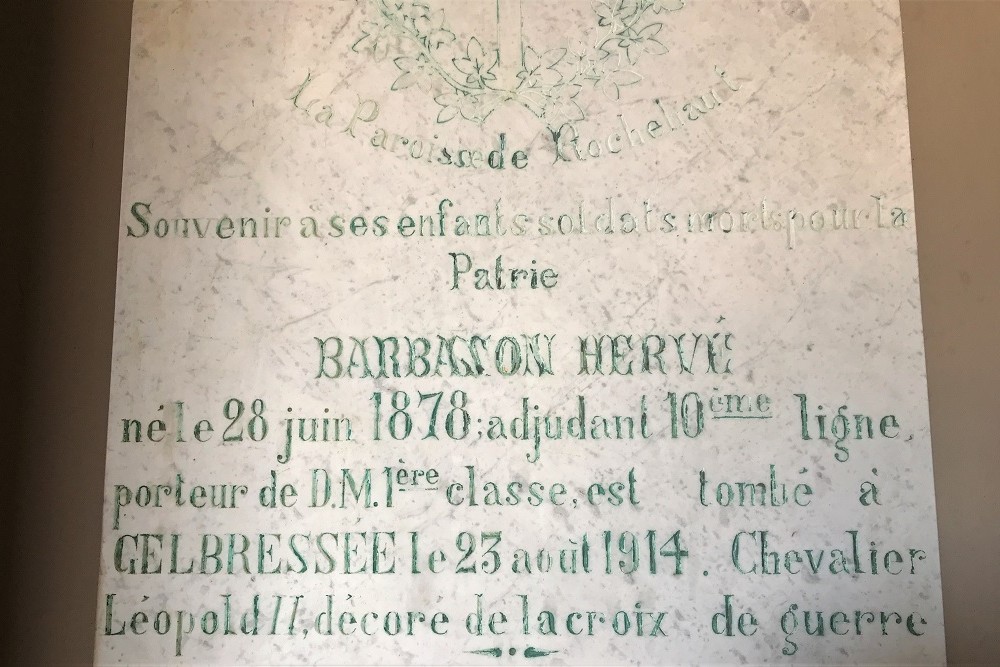 La Paroisse de Rochehaut
Souvenir a ses enfants soldats morts pour la
Patrie
BARBASON HERVÉ
né le 28 juin 1878; adjudant 10ème ligne,
porteur de D.M. 1ère classe, est tombé à
GELBRESSÉE le 23 août 1914. Chevalier
Léopold II, décoré de la croix de guerre